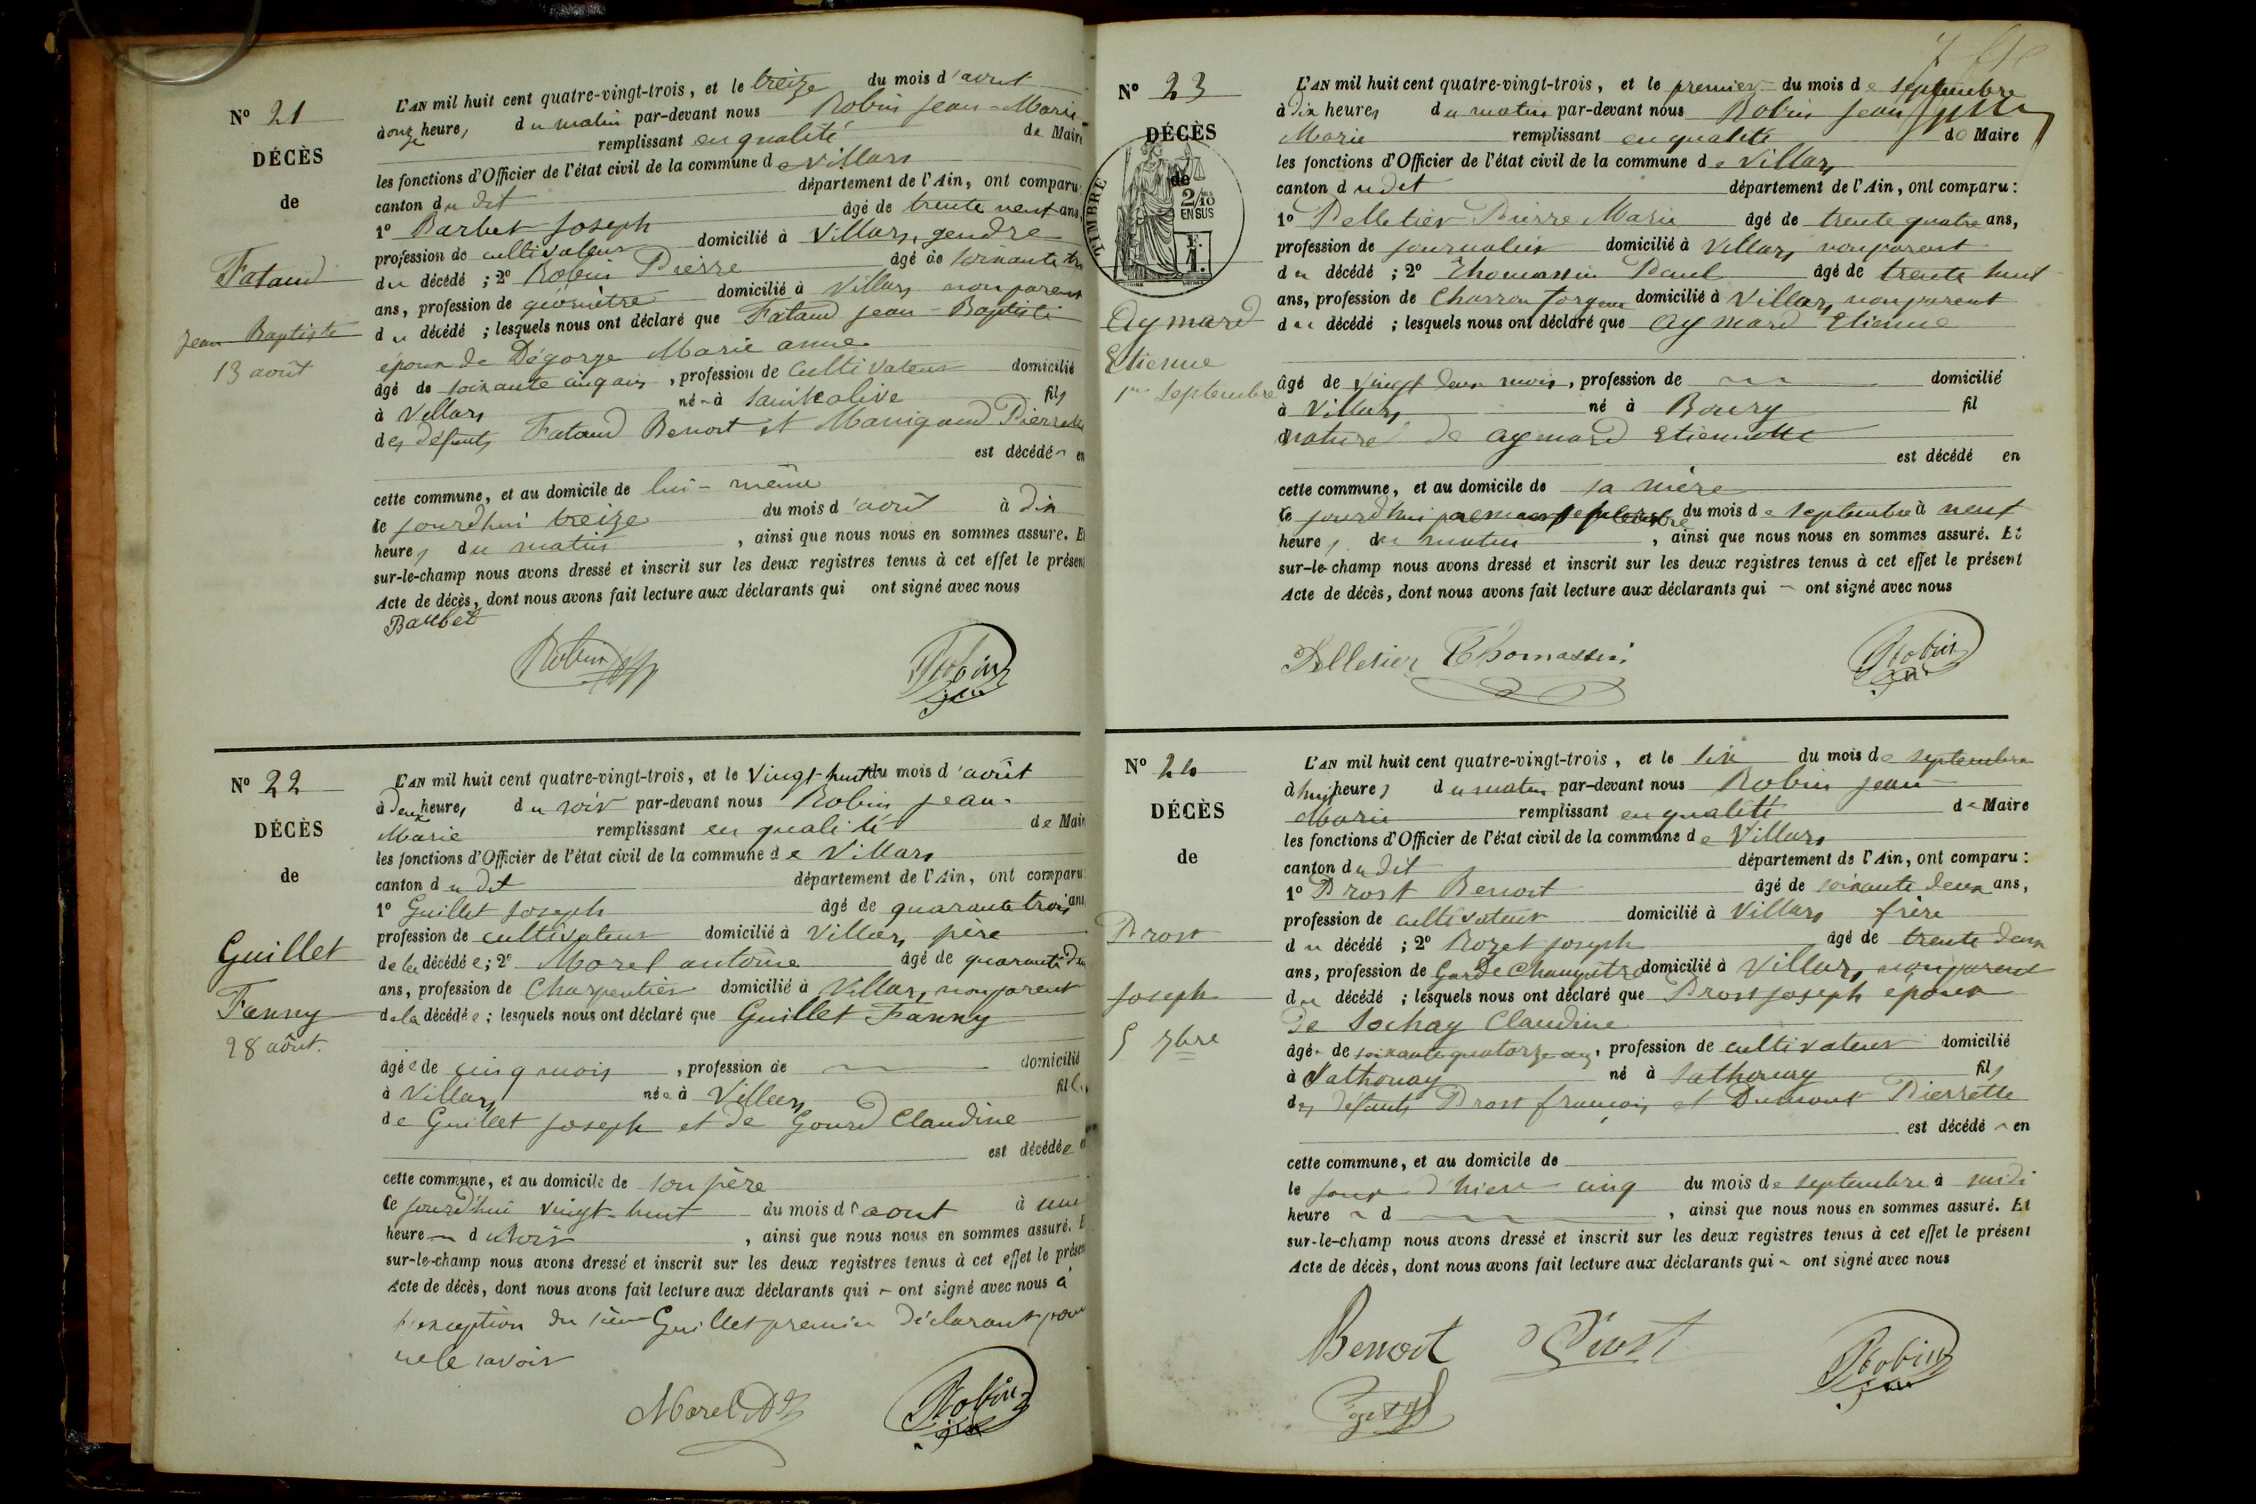 N° 21
DÉCÈS
de
Fataud
Jean Baptiste
13 août
L'AN mil huit cent quatre-vingt-trois, et le treize du mois d'août
à onze heures du matin par-devant nous Robin Jean-Marie
remplissant en qualité de Maire
les fonctions d'Officier de l'état civil de la commune de Villars
canton dudit département de l'Ain, ont comparu
1° Barbet Joseph âgé de trente neuf ans,
profession de cultivateur domicilié à Villars, gendre
du décédé ; 2° Robin Pierre âgé de soixante
ans, profession de géomètre domicilié à Villars non parent
du décédé ; lesquels nous ont déclaré que Fataud Jean-Baptiste
époux de Dégorge Marie anne
âgé de soixante cinq ans, profession de Cultivateur domicilié
à Villars né à Saint olive fils
des défunts Fataud Benoit et Manigand Pierrette
est décédé en
cette commune, et au domicile de lui-même
ce jourd'hui treize du mois d'août à dix
heures du matin, ainsi que nous nous en sommes assuré. Et
sur-le-champ nous avons dressé et inscrit sur les deux registres tenus à cet effet le présent
Acte de décès, dont nous avons fait lecture aux déclarants qui ont signé avec nous
Barbet
Robin Robin
N° 22
DÉCÈS
de
Guillet
Fanny
28 août.
L'AN mil huit cent quatre-vingt-trois, et le Vingt-huit du mois d'août
à deux heures du soir par-devant nous Robin Jean-
Marie remplissant en qualité de Maire
les fonctions d'Officier de l'état civil de la commune de Villars
canton dudit département de l'Ain, ont comparu:
1° Guillet Joseph âgé de quarante trois ans
profession de cultivateur domicilié à Villars, père
de la décédée ; 2° Morel antoine âgé de quarante
ans, profession de Charpentier domicilié à Villars, non parent
de la décédée ; lesquels nous ont déclaré que Guillet Fanny
âgée de cinq mois, profession de domicilié
à Villars née à Villars fille
de Guillet Joseph et de Gourd Claudine
est décédée en
cette commune, et au domicile de son père
ce jourd'hui vingt-huit du mois d'aout à une
heure du soir, ainsi que nous nous en sommes assuré. E
sur-le-champ nous avons dressé et inscrit sur les deux registres tenus à cet effet le présent
Acte de décès, dont nous avons fait lecture aux déclarants qui ont signé avec nous à
l'exception du sieur Guillet premier déclarant pour
ne le savoir
Morel Robin
N° 23
DÉCÈS
de
TIMBRE
2/10
EN SUS
Aymard
Etienne
1er Septembre
L'AN mil huit cent quatre-vingt-trois, et le premier du mois de septembre
à dix heures du matin par-devant nous Robin Jean
Marie remplissant en qualité de Maire
les fonctions d'Officier de l'état civil de la commune de Villars
canton dudit département de l'Ain, ont comparu :
1° Pelletier Pierre Marie âgé de trente quatre ans,
profession de journalier domicilié à Villars non parent
du décédé ; 2° Thomassin Paul âgé de trente huit
ans, profession de Charron forgeur domicilié à Villars, non parent
du décédé ; lesquels nous ont déclaré que Aymard Etienne
âgé de vingt deux mois, profession de domicilié
à Villars né à Bourg fil
naturel de Aymard Etiennette
est décédé en
cette commune, et au domicile de sa mère
ce jourd'hui premier septembre du mois de septembre à neuf
heures du matin, ainsi que nous nous en sommes assuré. Et
sur-le-champ nous avons dressé et inscrit sur les deux registres tenus à cet effet le présent
Acte de décès, dont nous avons fait lecture aux déclarants qui ont signé avec nous
Pelletier Thomassin Robin
N° 24
DÉCÈS
de
Prost
Joseph
5 7bre
L'AN mil huit cent quatre-vingt-trois, et le six du mois de septembre
à huit heures du matin par-devant nous Robin Jean
Marie remplissant en qualité de Maire
les fonctions d'Officier de l'état civil de la commune de Villars
canton dudit département de l'Ain, ont comparu :
1° Prost Benoit âgé de soixante deux ans,
profession de cultivateur domicilié à Villars frère
du décédé ; 2° Rozet Joseph âgé de trente deux
ans, profession de Garde Champêtre domicilié à Villars, non parent
du décédé ; lesquels nous ont déclaré que Prost Joseph époux
de Sochay Claudine
âgé de soixante quatorze ans, profession de cultivateur domicilié
à Sathonay né à Sathonay fils
des défunts Prost françois et Dumont Pierrette
est décédé en
cette commune, et au domicile de
le jour d'hier cinq du mois de septembre à midi
heure d, ainsi que nous nous en sommes assuré. Et
sur-le-champ nous avons dressé et inscrit sur les deux registres tenus à cet effet le présent
Acte de décès, dont nous avons fait lecture aux déclarants qui ont signé avec nous
Benoit Prost Robin